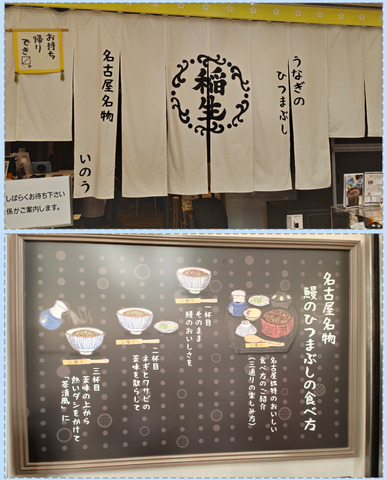 お持ち
帰り
でき〼。
うなぎの
ひつまぶし
稲生
名古屋名物
いのう
しばらくお待ち下さい
係がご案内します。
名古屋名物
鰻のひつまぶしの食べ方
名古屋独特のおいしい
食べ方のご紹介
(三通りの楽しみ方)
一杯目
そのまま
鰻のおいしさを
二杯目
ネギとワサビの
薬味を散らして
三杯目
薬味の上から
熱いダシをかけて
「茶漬風」に